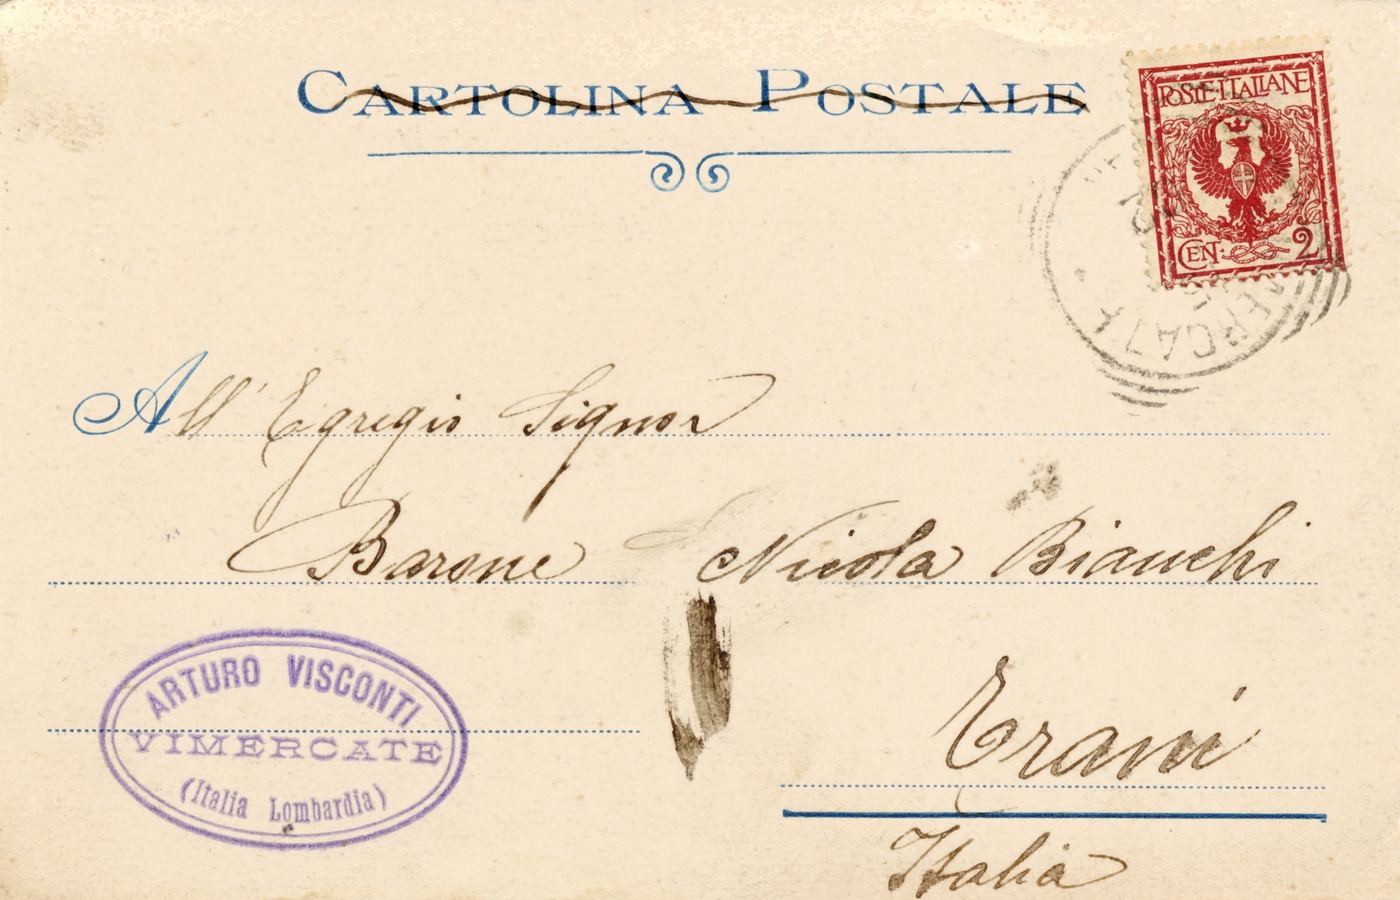 CARTOLINA POSTALE
POSTE ITALIANE
CEN. 2
All' Egregio Signor
Barone Nicola Bianchi
ARTURO VISCONTI
VIMERCATE
(Italia Lombardia)
Trani
Italia